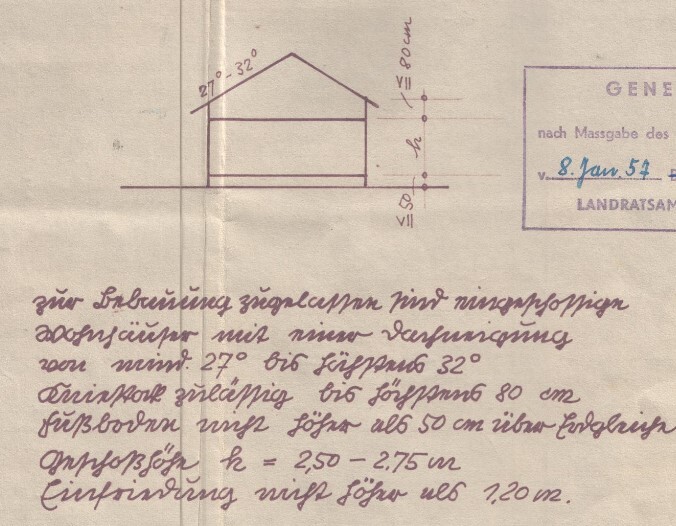 27° - 32°
≤ 80 cm
h
≤ 50
GENE
nach Massgabe des
v. 8. Jan. 57
LANDRATSAM
zur Bebauung zugelassen sind eingeschossige
Wohnhäuser mit einer Dachneigung
von mind. 27° bis höchstens 32°
Kniestock zulässig bis höchstens 80 cm
Fußboden nicht höher als 50 cm über Erdgleiche
Geschoßhöhe h = 2,50 – 2,75 m
Einfriedung nicht höher als 1,20 m.